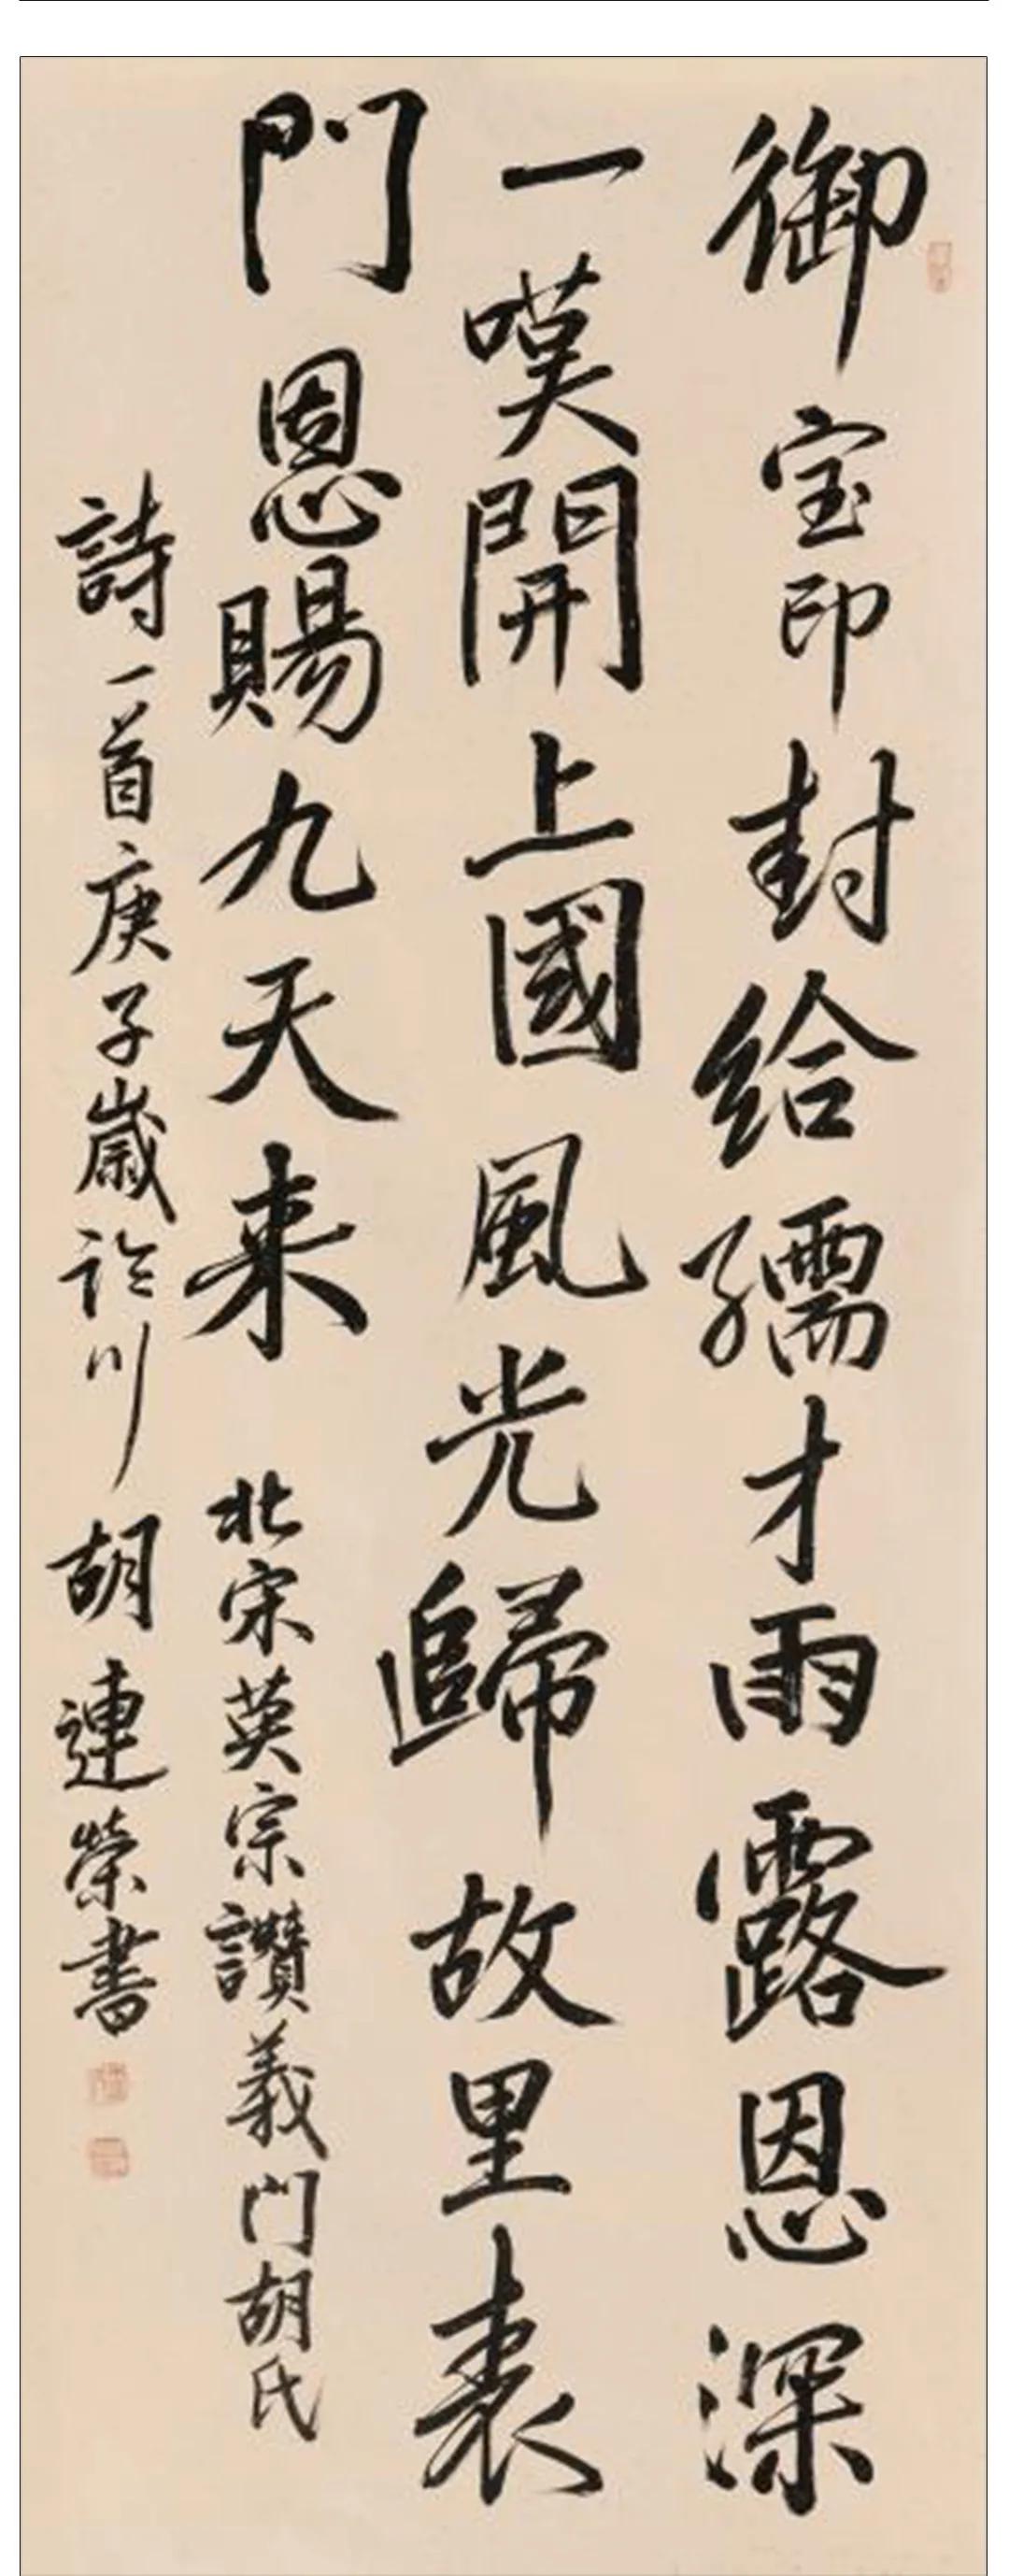 御宝印封给孺才雨露恩深
一嘆開上國風光歸故里表
門恩賜九天来
北宋英宗讚義門胡氏
詩一首庚子歲許川胡連榮書